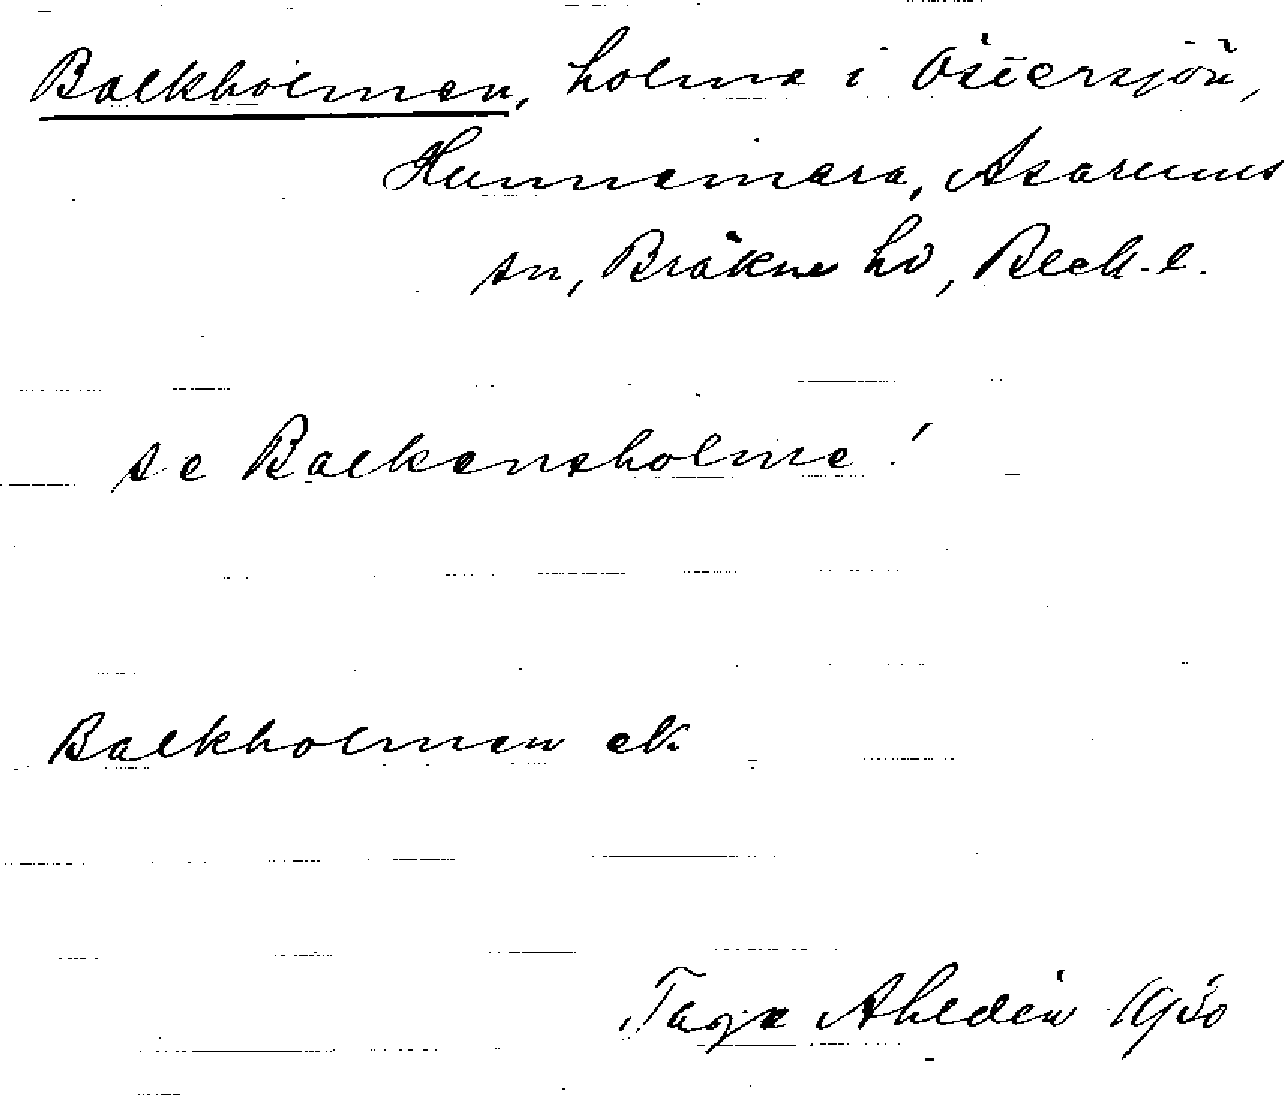 Balkholmen, holme i Östersjön,
Hunnemara, Asarums
sn, Bräkne hd, Blek. l.
se Balkensholme!
Balkholmen ek.
Tage Ahldén 1950